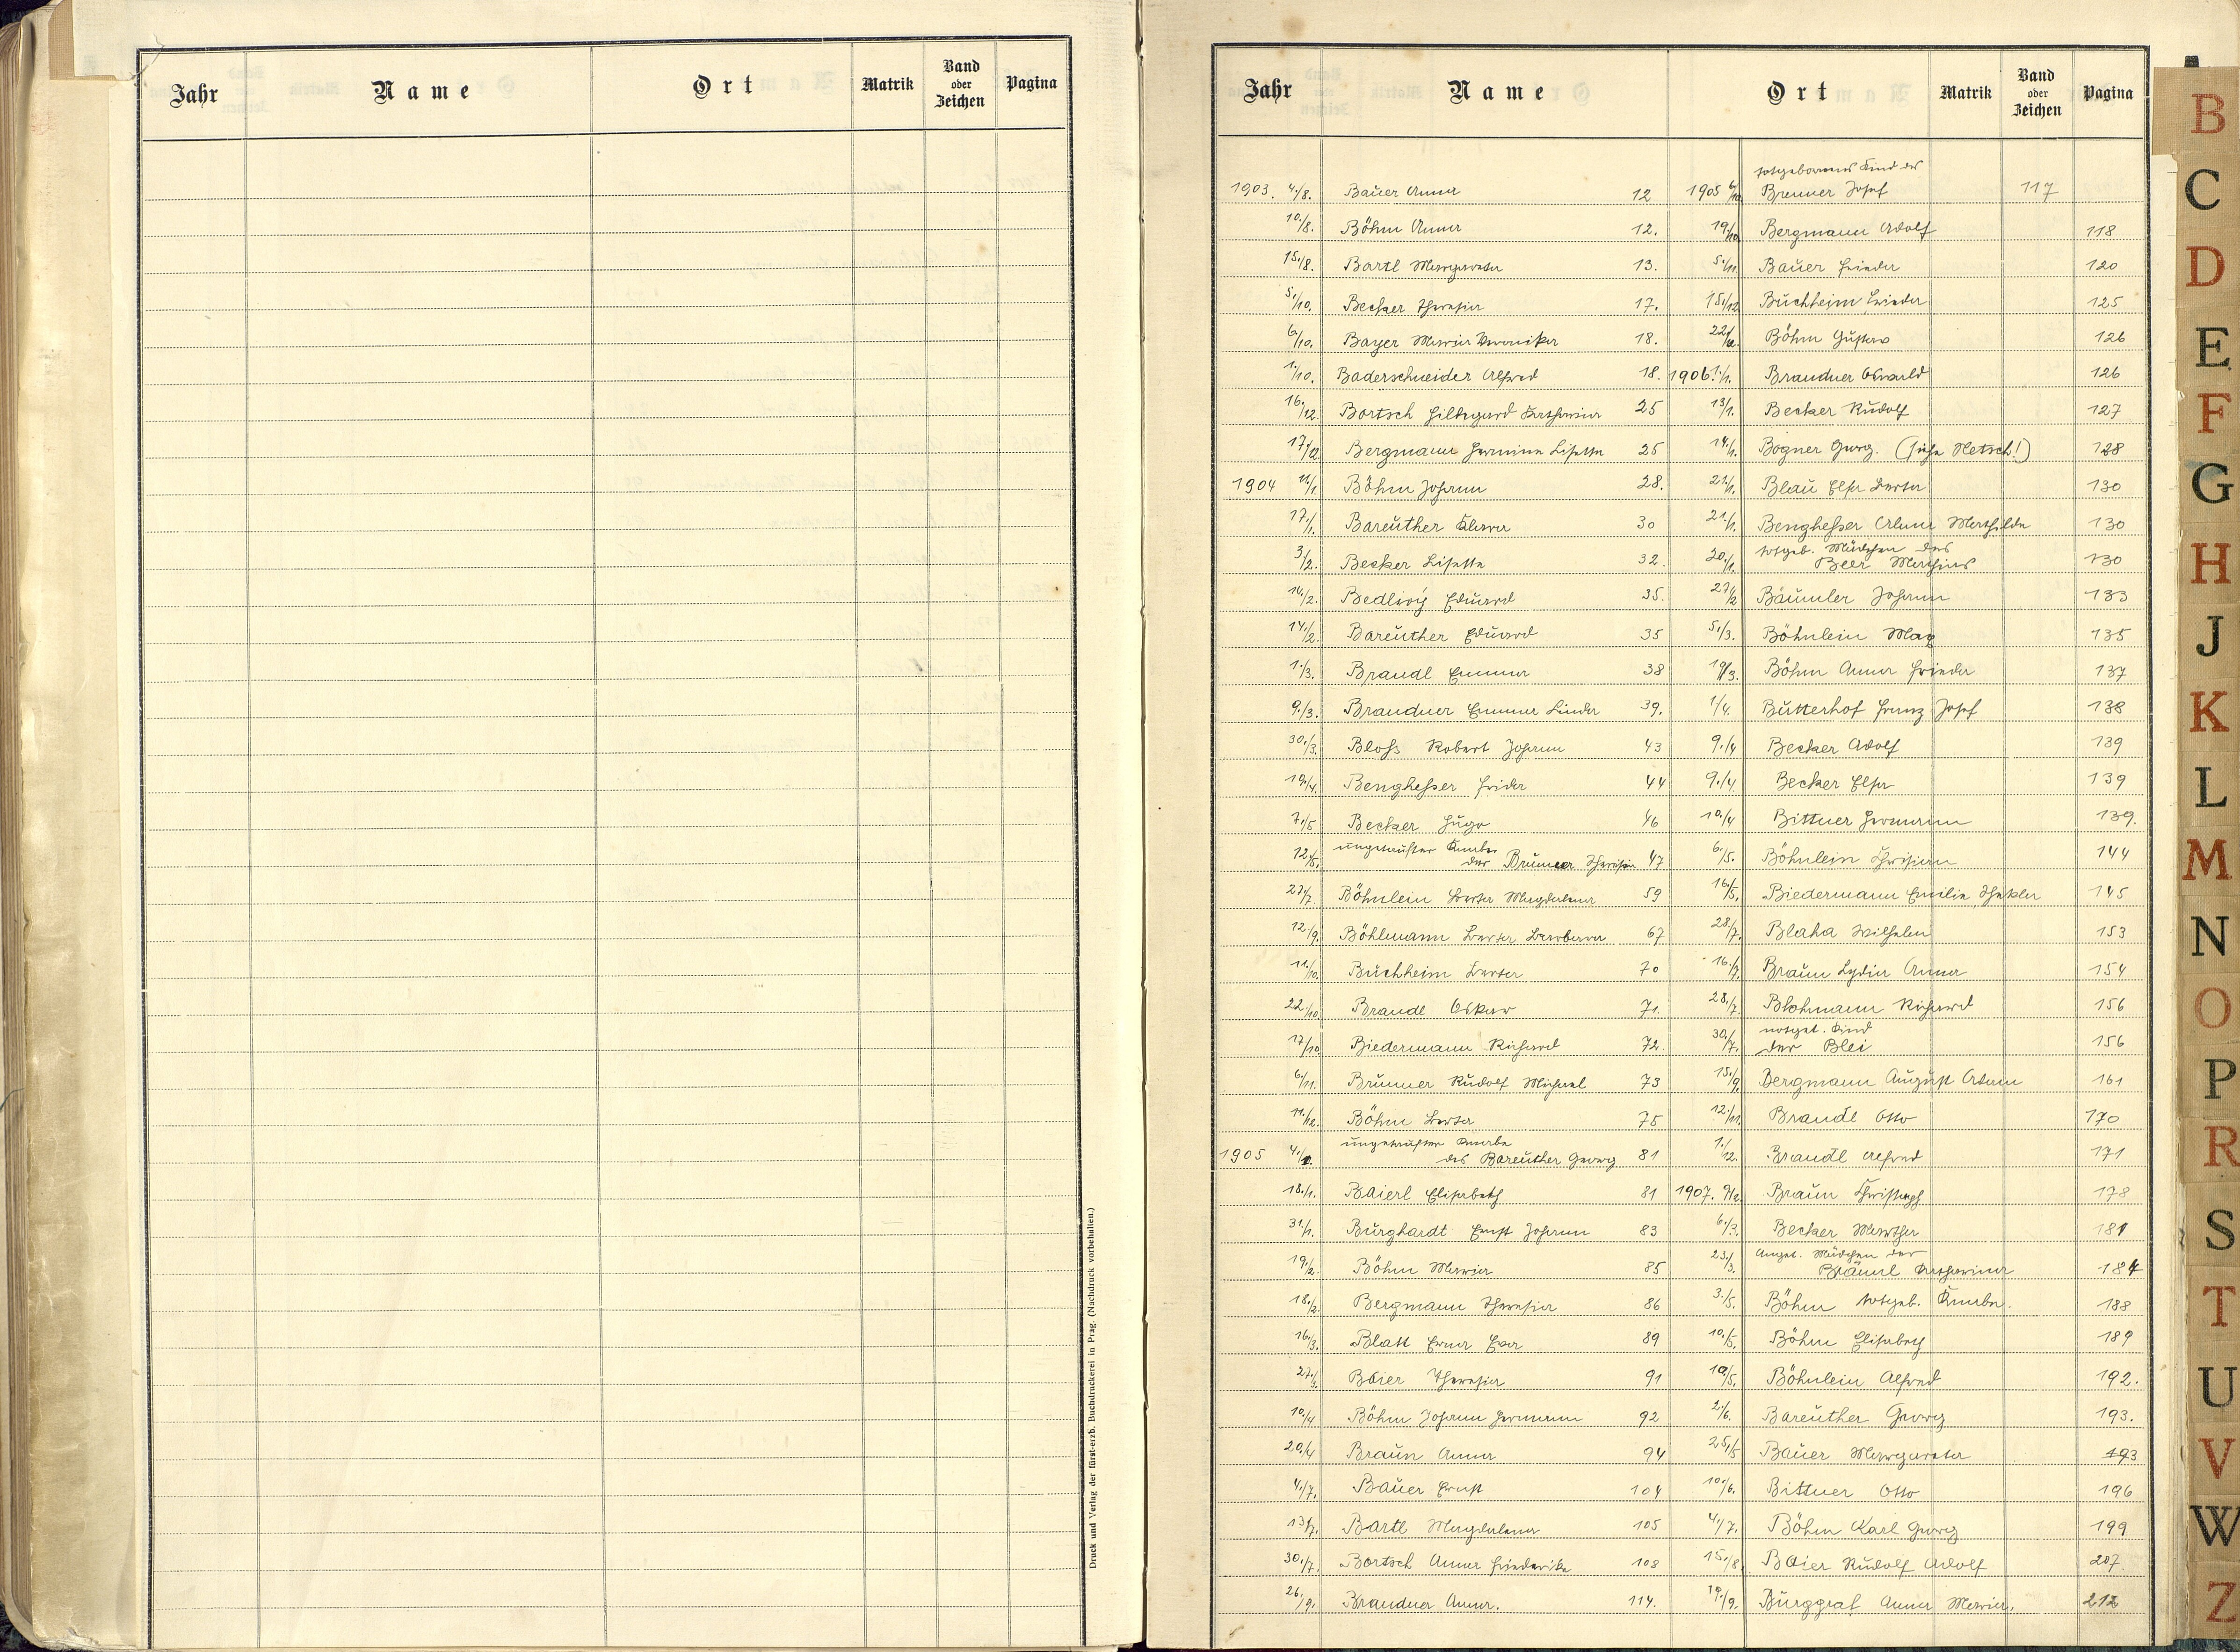 Jahr Name Ort Matrik Band oder Zeichen Pagina
Druck und Verlag der fürst-erzb. Buchdruckerei in Prag. (Nachdruck vorbehalten.)
Jahr Name Ort Matrik Band oder Zeichen Pagina
1903. 4./8. Bauer Anna 12
10./8. Böhm Anna 12.
15./8. Bartl Margareta 13.
5./10. Becker Theresia 17.
6./10. Bayer Maria Veronika 18.
1./10. Baderschneider Alfred 18.
16./12. Bortsch Hildegard Katharina 25
17./12. Bergmann Hermine Lisette 25
1904 11/1. Böhm Johann 28.
17./1. Bareuther Klara 30
3./2. Becker Lisette 32.
10./2. Bedlivý Eduard 35.
14./2. Bareuther Eduard 35
1./3. Brandl Emma 38
9./3. Brandner Emma Linda 39.
30./3. Bloß Robert Johann 43
19./4. Bengheßer Frieda 44
7./5 Becker Hugo 46
12./5. ungetaufter Knabe
der Brunner Theresia 47
27./7. Böhnlein Berta Magdalena 59
12./9. Böhlmann Berta Barbara 67
11./10. Buchheim Berta 70
22./10. Brandl Oskar 71.
17/10. Biedermann Richard 72.
6./11. Brunner Rudolf Michael 73
11./12. Böhm Berta 75
ungetaufter Knabe
1905 4./1. des Bareuther Georg 81
18./1. Baierl Elisabeth 81
31./1. Burghardt Ernst Johann 83
19./2. Böhm Maria 85
18./2. Bergmann Theresia 86
16./3. Blatt Erna Eva 89
27./3. Baier Theresia 91
10./4 Böhm Johann Hermann 92
20./4 Braun Anna 94
4./7. Bauer Ernst 104
13./7. Bartl Magdalena 105
30./7. Bortsch Anna Friederike 108
26./9. Brandner Anna. 114.
totgeborenes Kind des
1905 6/10. Brenner Josef 117
19./10 Bergmann Adolf 118
5./11. Bauer Frieda 120
15./12 Buchheim Frieda 125
22./12. Böhm Gustav 126
1906 1./1. Brandner Oswald 126
13/1. Becker Rudolf 127
14./1. Bogner Georg. (siehe Netsch!) 128
21/1. Blau Elsa Berta 130
21./1. Bengheßer Alma Mathilde 130
totgeb. Mädchen des
20./1. Beer Mathias 130
27/2 Bäumler Johann 133
5./3. Böhnlein Max 135
19/3. Böhm Anna Frieda 137
1/4. Butterhof Franz Josef 138
9./4 Becker Adolf 139
9./4. Becker Elsa 139
10./4 Bittner Hermann 139.
6/5. Böhnlein Christian 144
16./5. Biedermann Emilie Thekla 145
28/7. Blaha Wilhelm 153
16./7. Braun Lydia Anna 154
28./7. Blohmann Richard 156
notget. Kind
30./7. der Blei 156
15./9. Bergmann August Adam 161
12./11. Brandl Otto 170
1./12. Brandl Alfred 171
1907. 9/2. Braun Christoph 178
6./3. Becker Martha 181
23./3. Mädchen der
Bräunl Katharina 184
3./5. Böhm totgeb. Knabe. 188
10./5. Böhm Elisabeth 189
19/5. Böhnlein Alfred 192.
2/6. Bareuther Georg 193.
25./5 Bauer Margareta 193
10./6. Bittner Otto 196
4./7. Böhm Karl Georg 199
15./8. Baier Rudolf Adolf 207
19./9. Burggraf Anna Maria. 212
B
C
D
E
F
G
H
J
K
L
M
N
O
P
R
S
T
U
V
W
Z